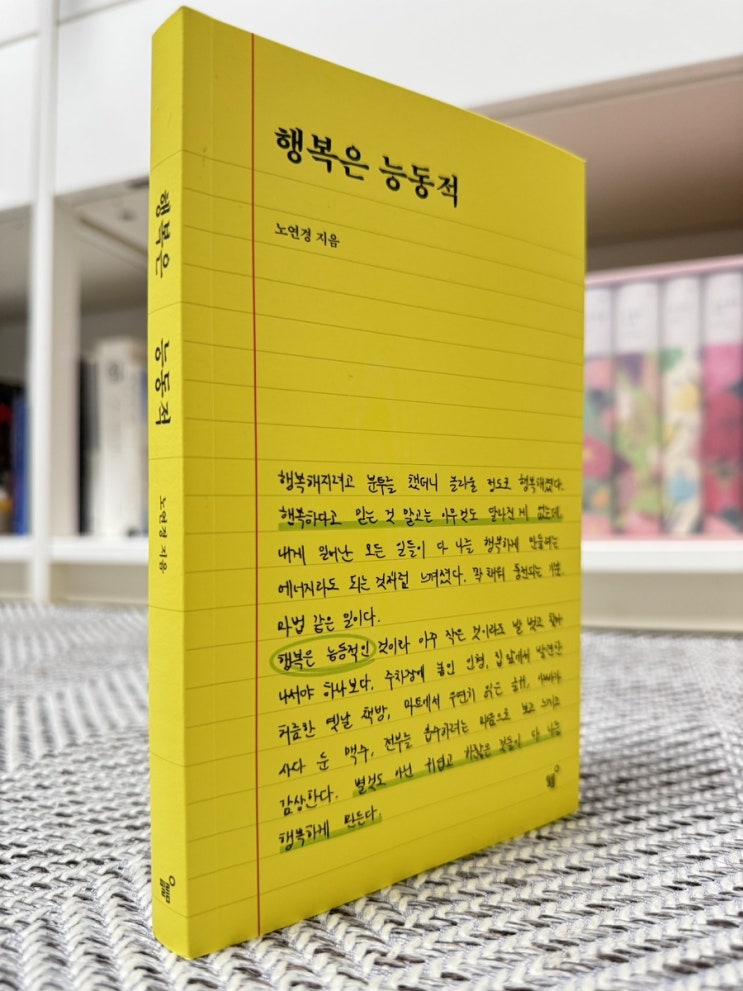 행복은 능동적
노연경 지음
행복해지려고 분투를 했더니 놀라울 정도로 행복해졌다.
행복하다고 믿는 것 말고는 아무것도 달라진 게 없는데,
내게 일어난 모든 일들이 다 나를 행복하게 만들려는
에너지라도 되는 것처럼 느껴졌다. 꽉 채워 충전되는 기분.
마법 같은 일이다.
행복은 능동적인 것이라 아주 작은 것이라도 발 벗고 찾아
나서야 하나보다. 주차장에 놓인 인형, 집 앞에서 발견한
허름한 옛날 책방, 마트에서 우연히 읽은 글귀,
사다 둔 맥주, 전부를 흡수하려는 마음으로 보고 느끼고
감상한다. 별것도 아닌 귀엽고 하찮은 것들이 다 나를
행복하게 만든다.
행복은 능동적
노연경 지음